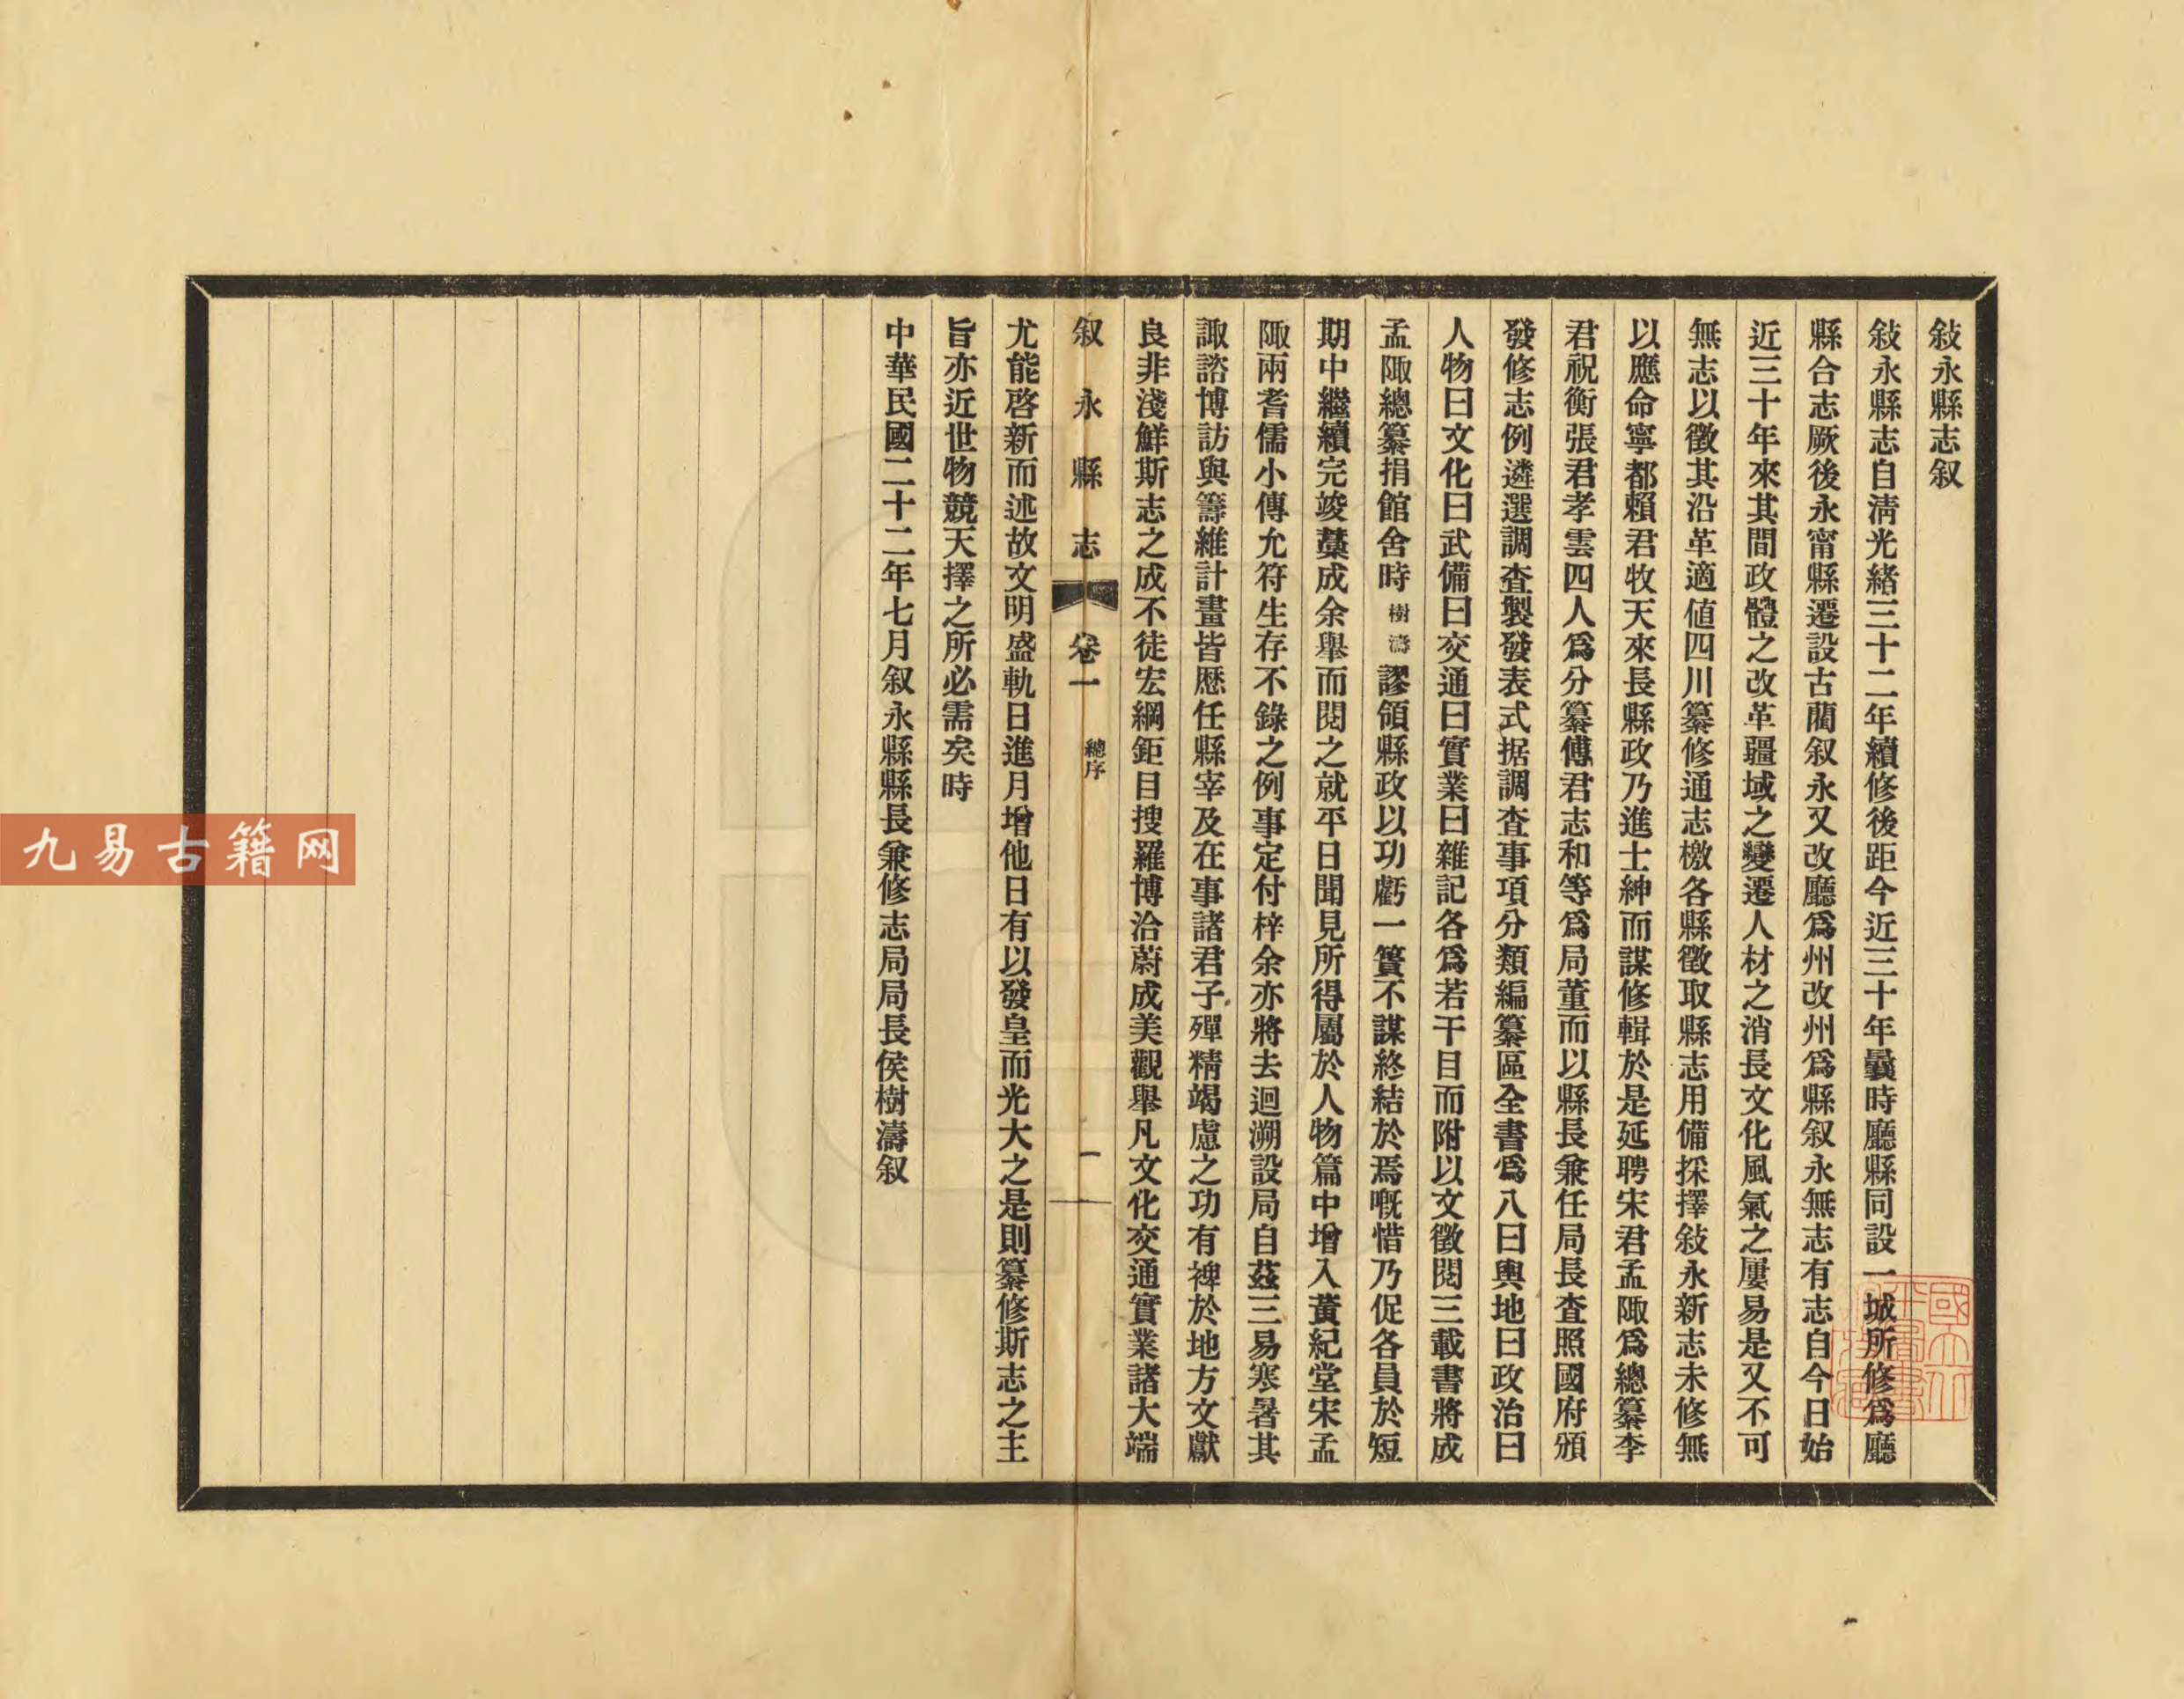 敍永縣志叙
敍永縣志自淸光緖三十二年續修後距今近三十年曩時廳縣同設一城所修爲廳
縣合志厥後永甯縣遷設古藺叙永又改廳爲州改州爲縣叙永無志有志自今日始
近三十年來其間政體之改革疆域之變遷人材之消長文化風氣之屢易是又不可
無志以徵其沿革適値四川纂修通志檄各縣徵取縣志用備採擇敍永新志未修無
以應命寧都賴君牧天來長縣政乃進士紳而謀修輯於是延聘宋君孟陬爲總纂李
君祝衡張君孝雲四人爲分纂傅君志和等爲局董而以縣長兼任局長査照國府頒
發修志例遴選調査製發表式据調査事項分類編纂區全書爲八曰輿地曰政治曰
人物曰文化曰武備曰交通曰實業曰雜記各爲若干目而附以文徵閱三載書將成
孟陬總纂捐館舍時樹濤謬領縣政以功虧一簣不謀終結於焉嘅惜乃促各員於短
期中繼續完竣藁成余舉而閱之就平日聞見所得屬於人物篇中增入黃紀堂宋孟
陬兩耆儒小傳允符生存不錄之例事定付梓余亦將去迴溯設局自茲三易寒暑其
諏諮博訪與籌維計畫皆歷任縣宰及在事諸君子殫精竭慮之功有裨於地方文獻
良非淺鮮斯志之成不徒宏綱鉅目搜羅博洽蔚成美觀舉凡文化交通實業諸大端
叙永縣志 卷一 總序 一
尤能啓新而述故文明盛軌日進月增他日有以發皇而光大之是則纂修斯志之主
旨亦近世物競天擇之所必需矣時
中華民國二十二年七月叙永縣縣長兼修志局局長侯樹濤叙
九易古籍网